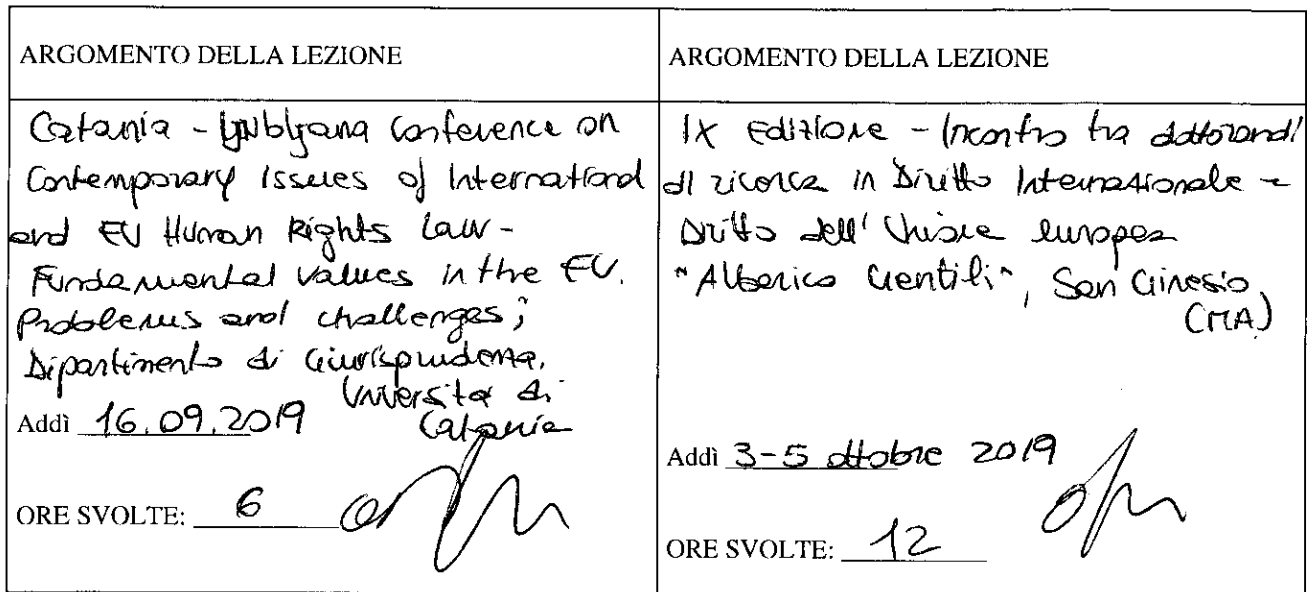 ARGOMENTO DELLA LEZIONE
Catania - Ljubljana Conference on
Contemporary Issues of International
and EU Human Rights Law -
Fundamental values in the EU.
Problems and challenges;
Dipartimento di Giurisprudenza,
Università di
Catania
Addì 16.09.2019
ORE SVOLTE: 6
ARGOMENTO DELLA LEZIONE
IX Edizione - Incontro tra dottorandi
di ricerca in Diritto Internazionale -
Diritto dell'Unione europea
"Alberico Gentili", San Ginesio,
(MA)
Addì 3-5 ottobre 2019
ORE SVOLTE: 12